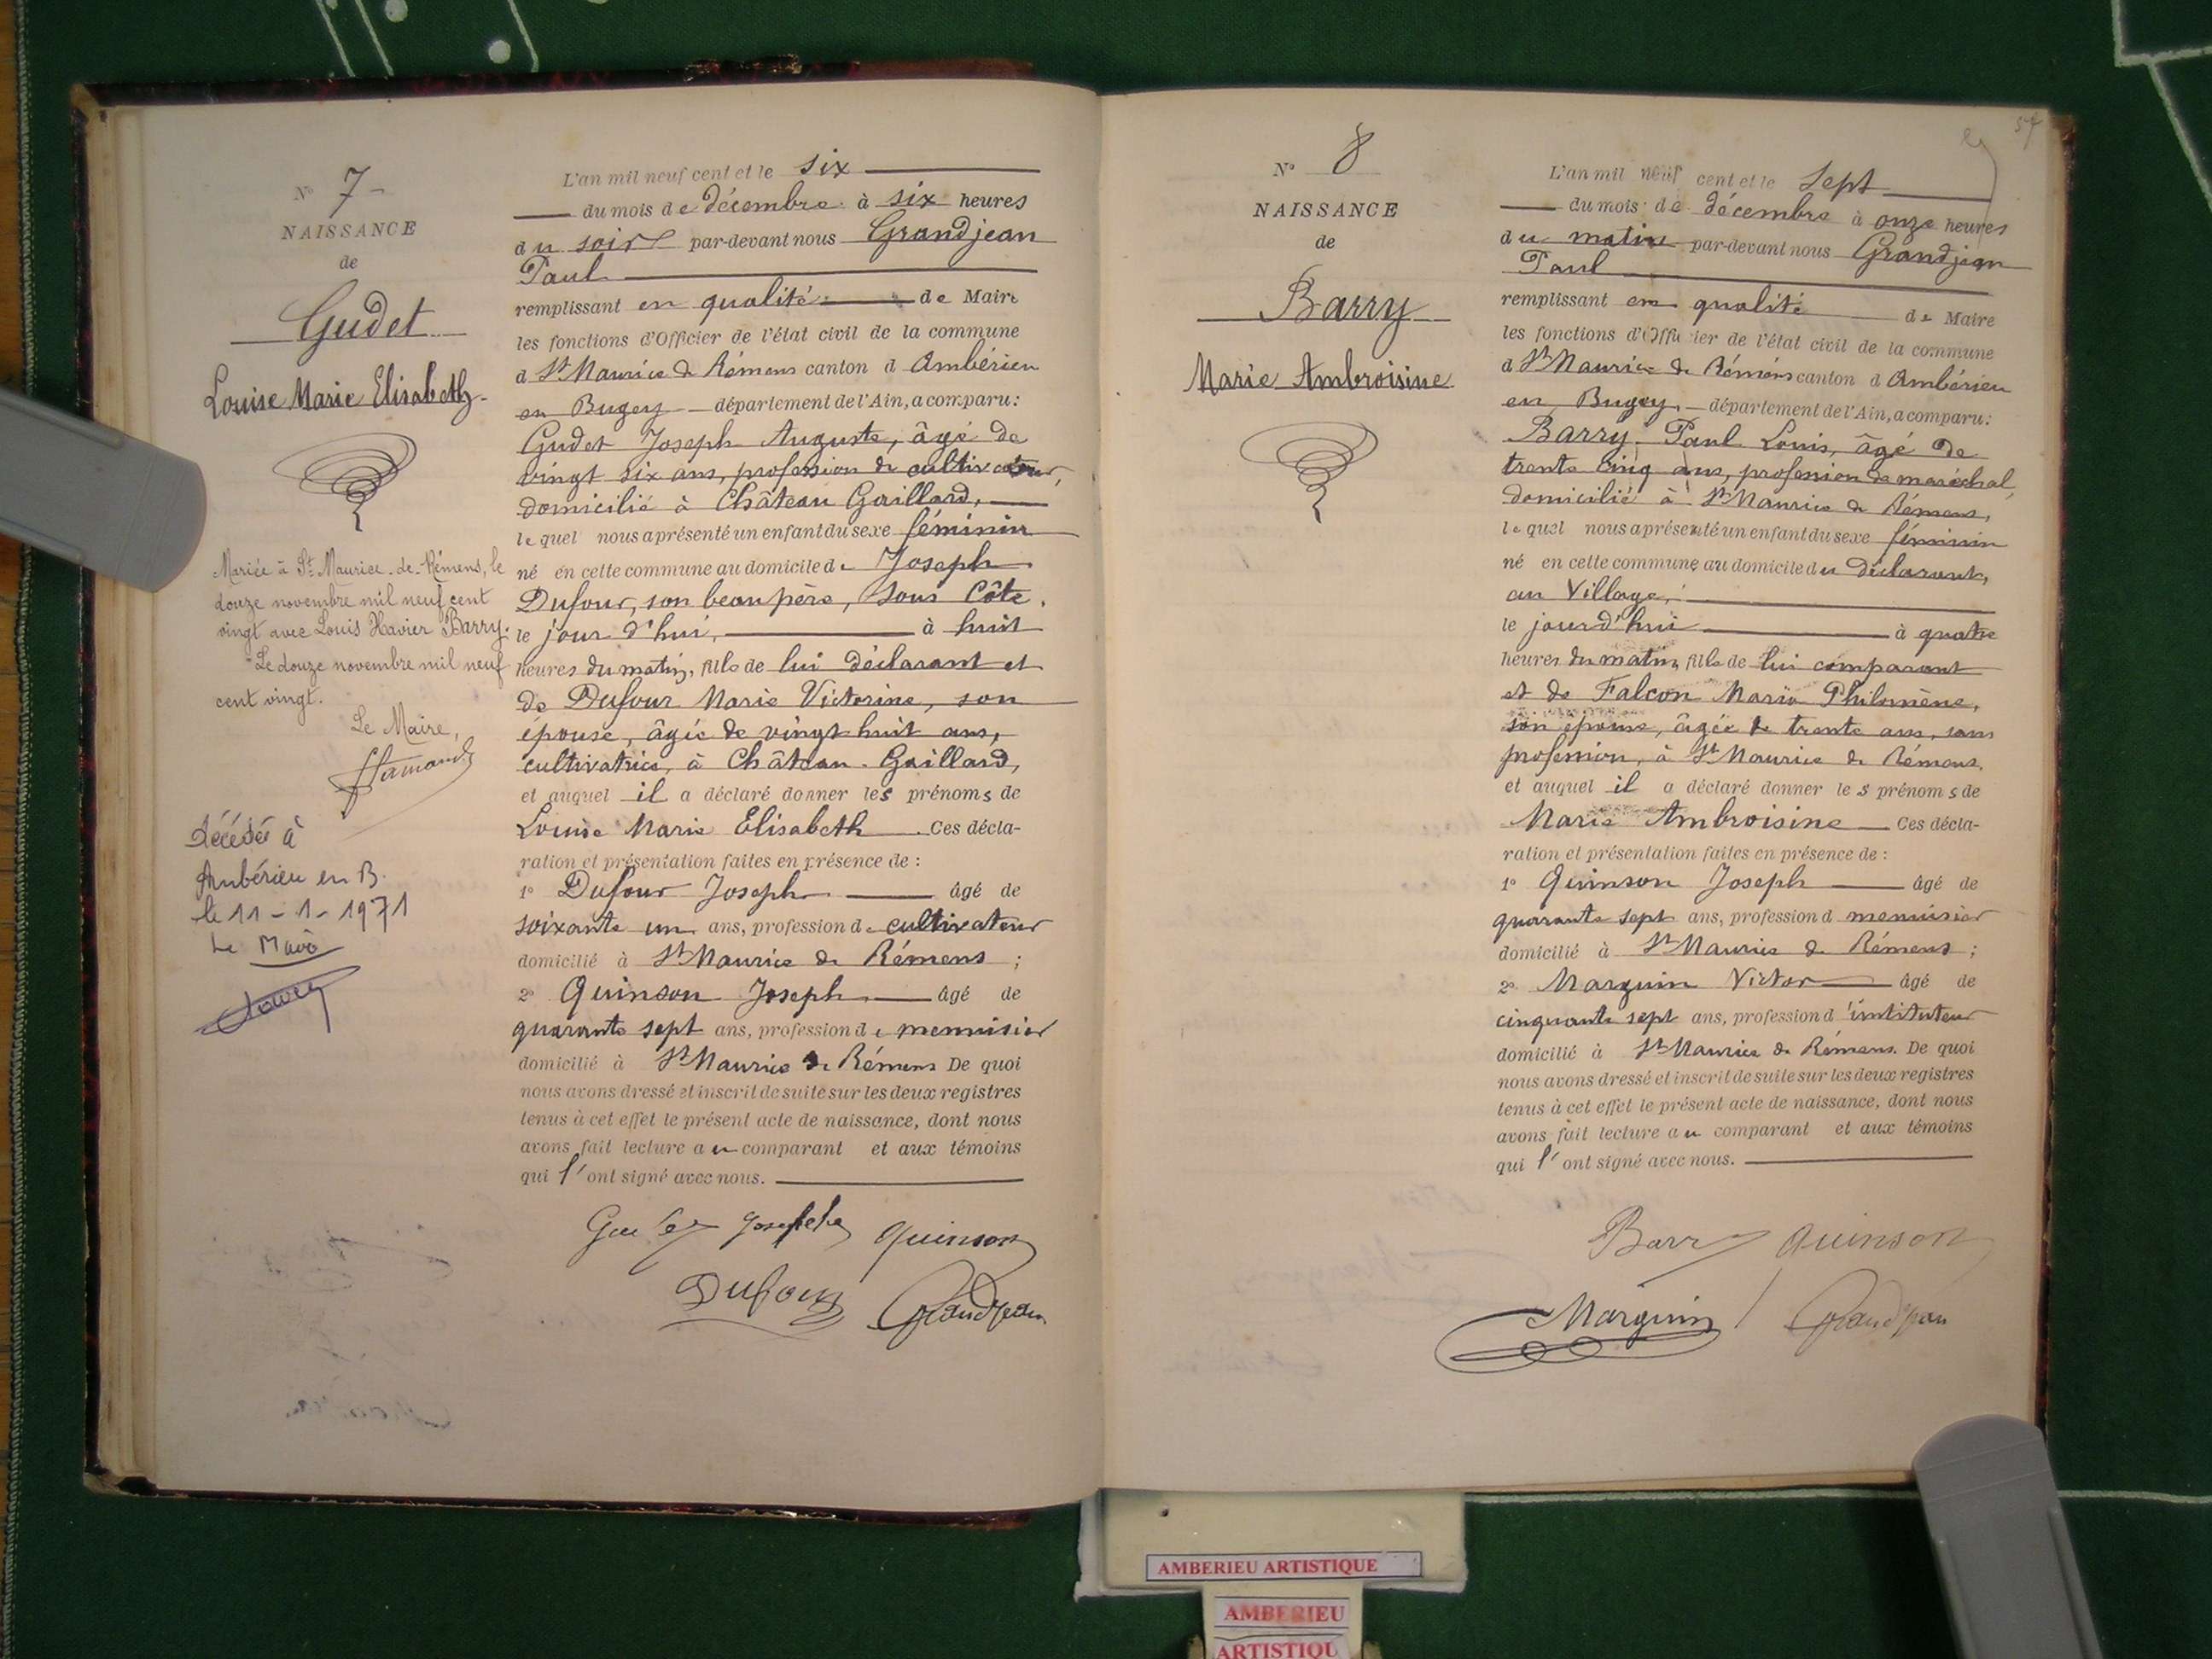 N° 7
NAISSANCE
de
Gudet
Louise Marie Elisabeth
Mariée à St Maurice-de-Rémens, le
douze novembre mil neuf cent
vingt avec Louis Xavier Barry.
Le douze novembre mil neuf
cent vingt.
Le Maire,
Décédée à
Ambérieu en B.
le 11-1-1971
Le Maire
L'an mil neuf cent et le six
du mois de décembre à six heures
du soir par-devant nous Grandjean
Paul
remplissant en qualité de Maire
les fonctions d'Officier de l'état civil de la commune
d St Maurice de Rémens canton d Ambérieu
en Bugey département de l'Ain, a comparu:
Gudet Joseph Auguste, âgé de
vingt six ans, profession de cultivateur,
domicilié à Château Gaillard,
lequel nous a présenté un enfant du sexe féminin
né en cette commune au domicile de Joseph
Dufour, son beau père, sous Côte.
le jour d'hui, à huit
heures du matin, fille de lui déclarant et
de Dufour Marie Victorine, son
épouse, âgée de vingt huit ans,
cultivatrice, à Château-Gaillard,
et auquel il a déclaré donner les prénoms de
Louise Marie Elisabeth Ces décla-
ration et présentation faites en présence de :
1° Dufour Joseph âgé de
soixante un ans, profession de cultivateur
domicilié à St Maurice de Rémens ;
2° Quinson Joseph âgé de
quarante sept ans, profession de menuisier
domicilié à St Maurice de Rémens De quoi
nous avons dressé et inscrit de suite sur les deux registres
tenus à cet effet le présent acte de naissance, dont nous
avons fait lecture au comparant et aux témoins
qui l'ont signé avec nous.
Gudet Joseph Quinson
Dufour Grandjean
57
N° 8
NAISSANCE
de
Barry
Marie Ambroisine
L'an mil neuf cent et le sept
du mois de décembre à onze heures
du matin par-devant nous Grandjean
Paul
remplissant en qualité de Maire
les fonctions d'Officier de l'état civil de la commune
d St Maurice de Rémens canton d Ambérieu
en Bugey, département de l'Ain, a comparu:
Barry Paul Louis, âgé de
trente cinq ans, profession de maréchal,
domicilié à St Maurice de Rémens,
lequel nous a présenté un enfant du sexe féminin
né en cette commune au domicile du déclarant,
au Village,
le jour d'hui à quatre
heures du matin, fille de lui comparant
et de Falcon Marie Philomène,
son épouse, âgée de trente ans, sans
profession, à St Maurice de Rémens.
et auquel il a déclaré donner les prénoms de
Marie Ambroisine Ces décla-
ration et présentation faites en présence de :
1° Quinson Joseph âgé de
quarante sept ans, profession d menuisier
domicilié à St Maurice de Rémens ;
2° Marguin Victor âgé de
cinquante sept ans, profession d'instituteur
domicilié à St Maurice de Rémens. De quoi
nous avons dressé et inscrit de suite sur les deux registres
tenus à cet effet le présent acte de naissance, dont nous
avons fait lecture au comparant et aux témoins
qui l'ont signé avec nous.
Barry Quinson
Marguin Grandjean
AMBERIEU ARTISTIQUE
AMBERIEU
ARTISTIQU